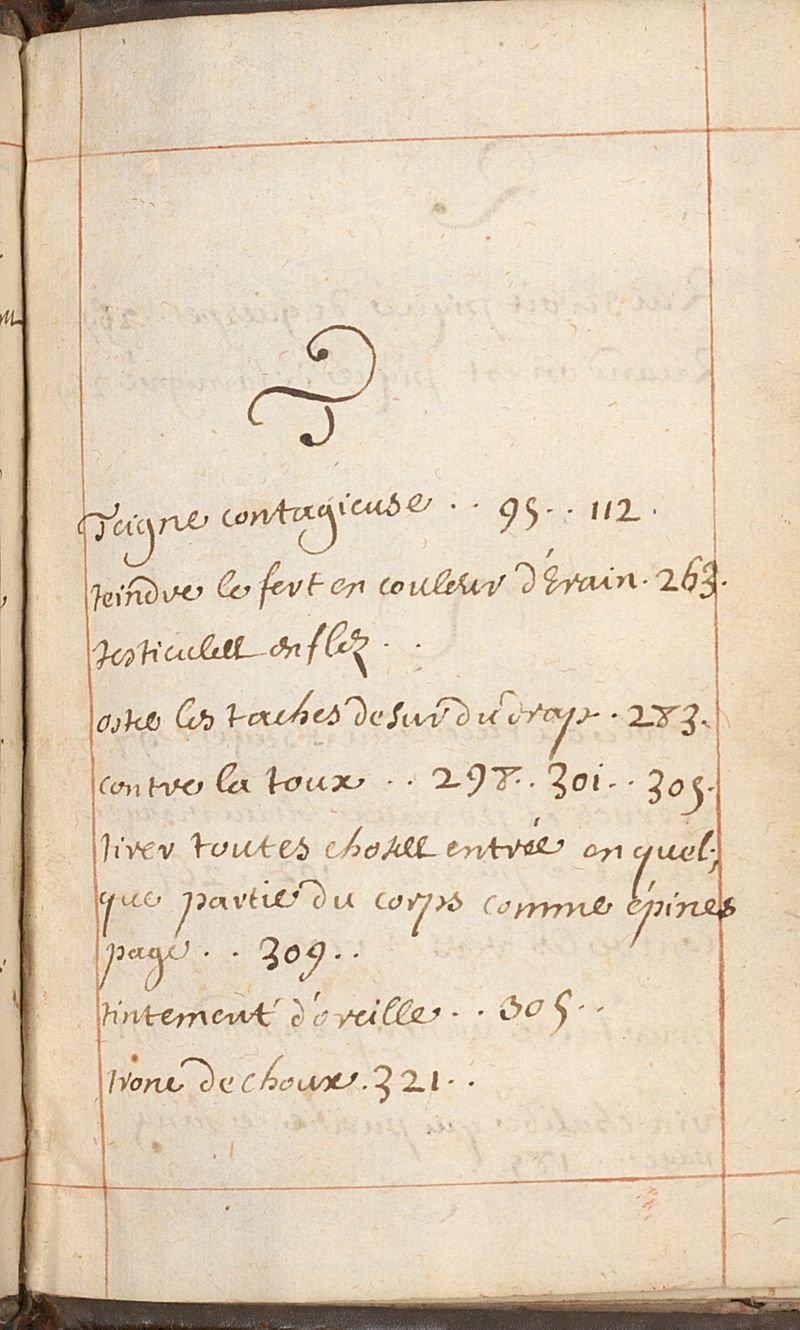 T
Teigne contagieuse . . 95 . . 112 .
teindre le fert en couleur d'érain . 263 .
testicules enflez . .
oster les taches de sur du drap . 283 .
contre la toux . . 298 . . 301 . . 305 .
tirer toutes choses entrée en quel-
que partie du corps comme épines
page . . 309 . .
tintement d'oreille . . 305 . .
tronc de choux . 321 . .